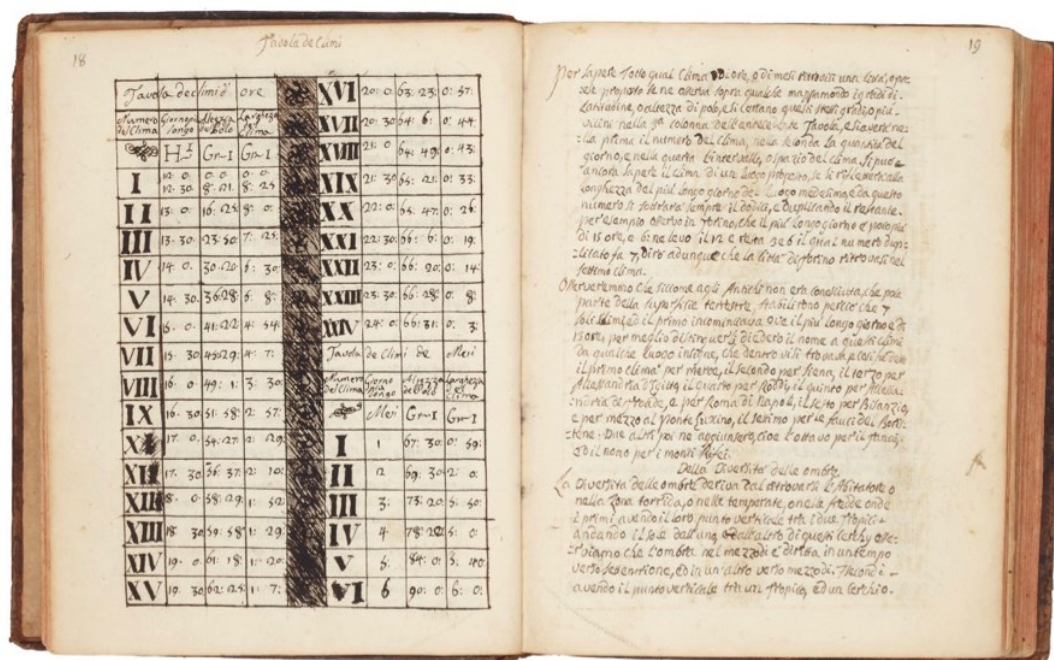 18
Tavola de Climi
Tavola declimi d' ore
Numero del Clima Giorno più longo Altezza del Polo Larghezza del Clima
H I Gr I Gr I
I 12 0 0 0 0 0
12 30 8 21 8 25
II 13 0 16 25 8 0
III 13 30 23 50 7 25
IV 14 0 30 20 6 30
V 14 30 36 28 6 8
VI 15 0 41 22 4 54
VII 15 30 45 29 4 7
VIII 16 0 49 1 3 30
IX 16 30 51 58 2 57
X 17 0 54 27 2 29
XI 17 30 56 37 2 10
XII 18 0 58 29 1 52
XIII 18 30 59 58 1 29
XIV 19 0 61 18 1 20
XV 19 30 62 25 1 7
XVI 20 0 63 23 0 57
XVII 20 30 64 6 0 44
XVIII 21 0 64 49 0 43
XIX 21 30 65 21 0 33
XX 22 0 65 47 0 26
XXI 22 30 66 6 0 19
XXII 23 0 66 20 0 14
XXIII 23 30 66 28 0 8
XXIV 24 0 66 31 0 3
Tavola de Climi de Mesi
Numero del Clima Giorno più longo Altezza del Polo Larghezza del Clima
Mesi Gr I Gr I
I 1 67 30 0 59
II 2 69 30 2 0
III 3 73 20 3 50
IV 4 78 20 5 0
V 5 84 0 5 40
VI 6 90 0 6 0
19
Per sapere sotto qual Clima di ore, o di mesi ritrovisi una Città, o pae-
se proposto se ne osserva sopra qualche mappamondo i gradi di
Latitudine, o altezza di polo, e si cercano questi stessi gradi, o più
vicini nella 3a colonna dell'antecedente Tavola, e si averà ne-
lla prima il numero del Clima, nella seconda la quantità del
giorno, e nella quarta l'intervallo, o spazio del clima. Si può e
ancora sapere il clima di un luogo proposto, se si rifletterà alla
longhezza del più longo giorno del luogo medesimo, e da questo
numero si sottrarà sempre il dodici, e duplicando il restante.
per esempio osservo in Torino, che il più longo giorno è poco più
di 15 ore, e 6 ne levo il 12 e resta 3 e 6 il qual numero dup-
licato fa 7, dirò adunque che la città di Torino ritrovasi nel
settimo clima.
Osserveremo che siccome agli Antichi non era conosciuta, che poca
parte della superficie terrestre, stabilirono perciò che 7
soli Climi ed il primo incominciava ove il più longo giorno è di
13 ore, per meglio distinguerli diedero il nome a questi climi
da qualche luogo insigne, che dentro vi si trovava e così fu detto
il primo clima per meroe, il secondo per Siena, il terzo per
Allessandria d'Egitto, il quarto per Roddi, il quinto per
e per Roma di Napoli, il sesto per Bisanzio,
e per mezzo al Ponte Euxino, il settimo per le fauci del Boris-
tene. Due altri poi ne aggiunsero, cioè l'ottavo per il
ed il nono per i monti Rifei.
Della Diversità delle ombre.
La Diversità delle ombre deriva dal ritrovarsi l'Abitatore o
nella Zona torrida, o nelle temperate, o nelle fredde onde
i primi avendo il loro punto verticale tra i due tropici
andando il sole dall'uno, e dall'altro di questi cerchi osse-
rviamo che l'ombra nel mezzodì è diretta in un tempo
verso settentrione, ed in un'altro verso mezzodì. I secondi
avendo il punto verticale tra un tropico, ed un Cerchio